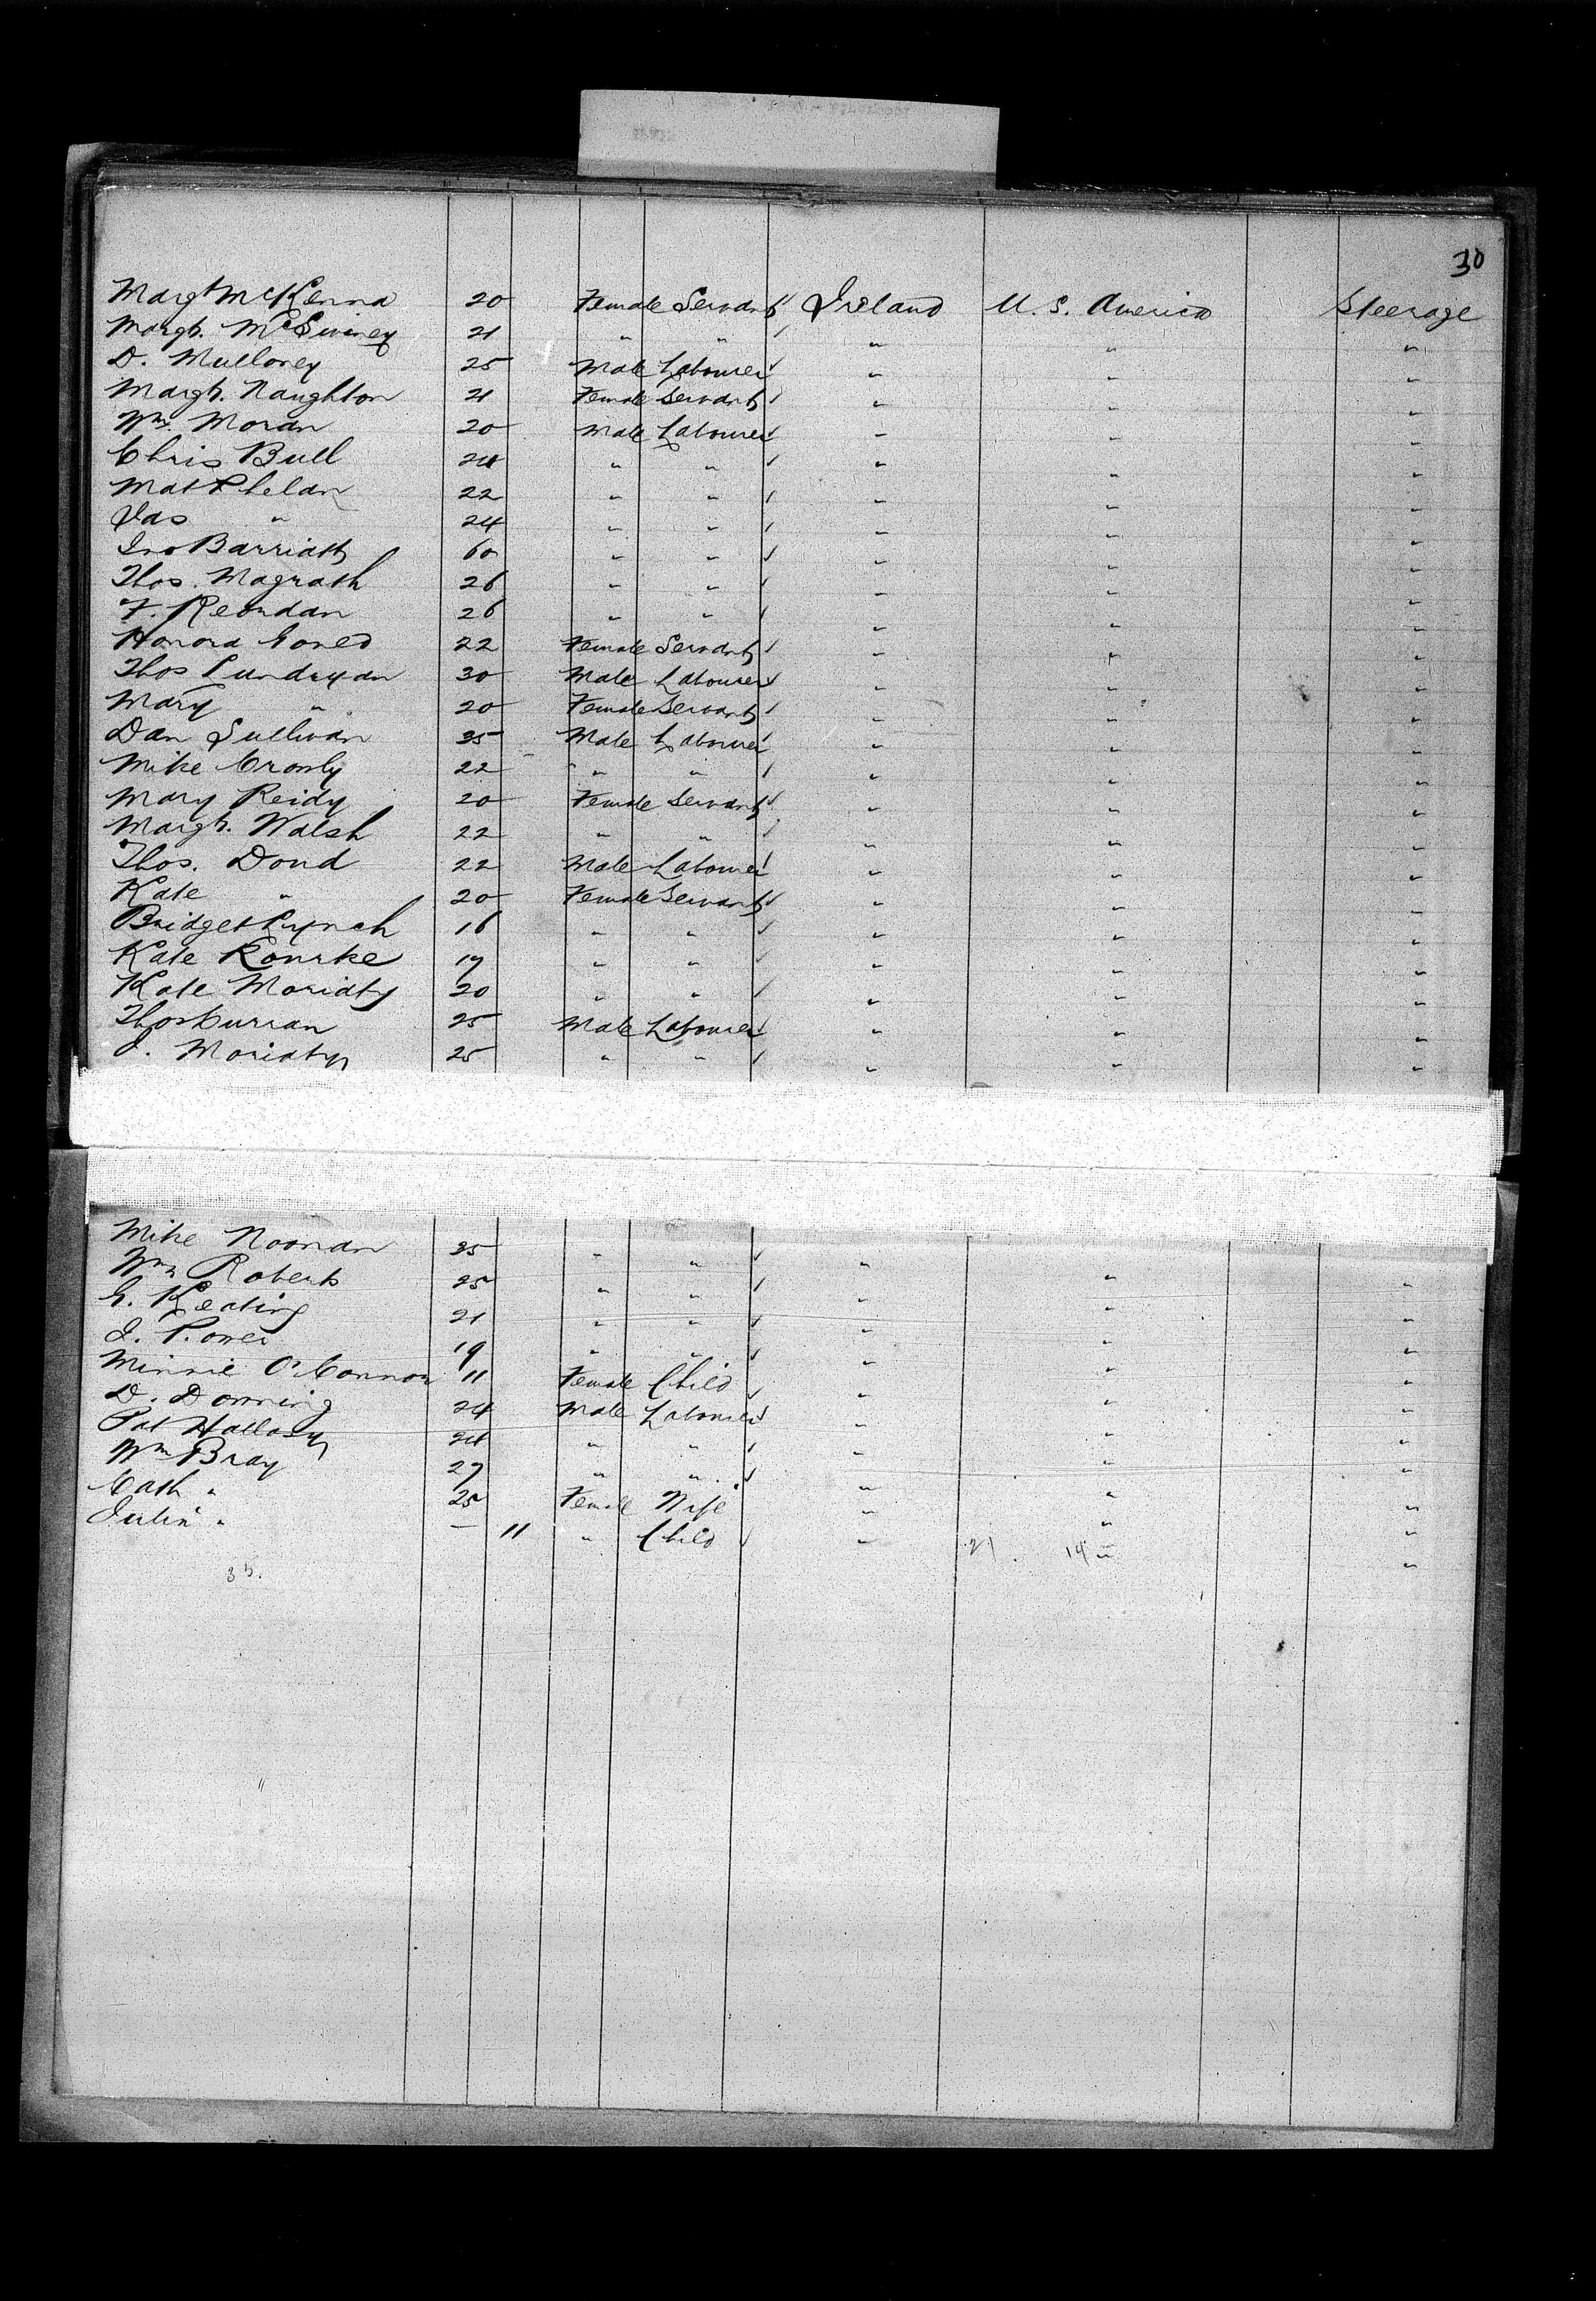 30
Margt McKenna 20 Female Servant Ireland U. S. America Steerage
Margt. McSwiney 21 " " " " "
D. Mulloney 25 Male Labourer " " "
Margt. Naughton 21 Female Servant " " "
Wm. Moran 20 Male Labourer " " "
Chris Bull 24 " " " " "
Mat Phelan 22 " " " " "
Jas " 24 " " " " "
Jno 60 " " " " "
Thos. Magrath 26 " " " " "
F. Reordan 26 " " " " "
Honora 22 Female Servant " " "
Thos Lundryan 30 Male Labourer " " "
Mary " 20 Female Servant " " "
Dan Sullivan 35 Male Labourer " " "
Mike Cronly 22 " " " " "
Mary Reidy 20 Female Servant " " "
Margt. Walsh 22 " " " " "
Thos. Doud 22 Male Labourer " " "
Kate " 20 Female Servant " " "
Bridget Lynch 16 " " " " "
Kate Rourke 19 " " " " "
Kate Moriaty 20 " " " " "
Thos Curran 25 Male Labourer " " "
J. Moriaty 25 " " " " "
Mike Noonan 25 " " " " "
Wm Roberts 25 " " " " "
G. Keating 21 " " " " "
J. Power 19 " " " " "
Minnie O'Connor 11 Female Child " " "
D. Downing 24 Male Labourer " " "
Pat 24 " " " " "
Wm Bray 27 " " " " "
Cath " 25 Female Wife " " "
Julia " — 11 " Child " " "
35. 21 14